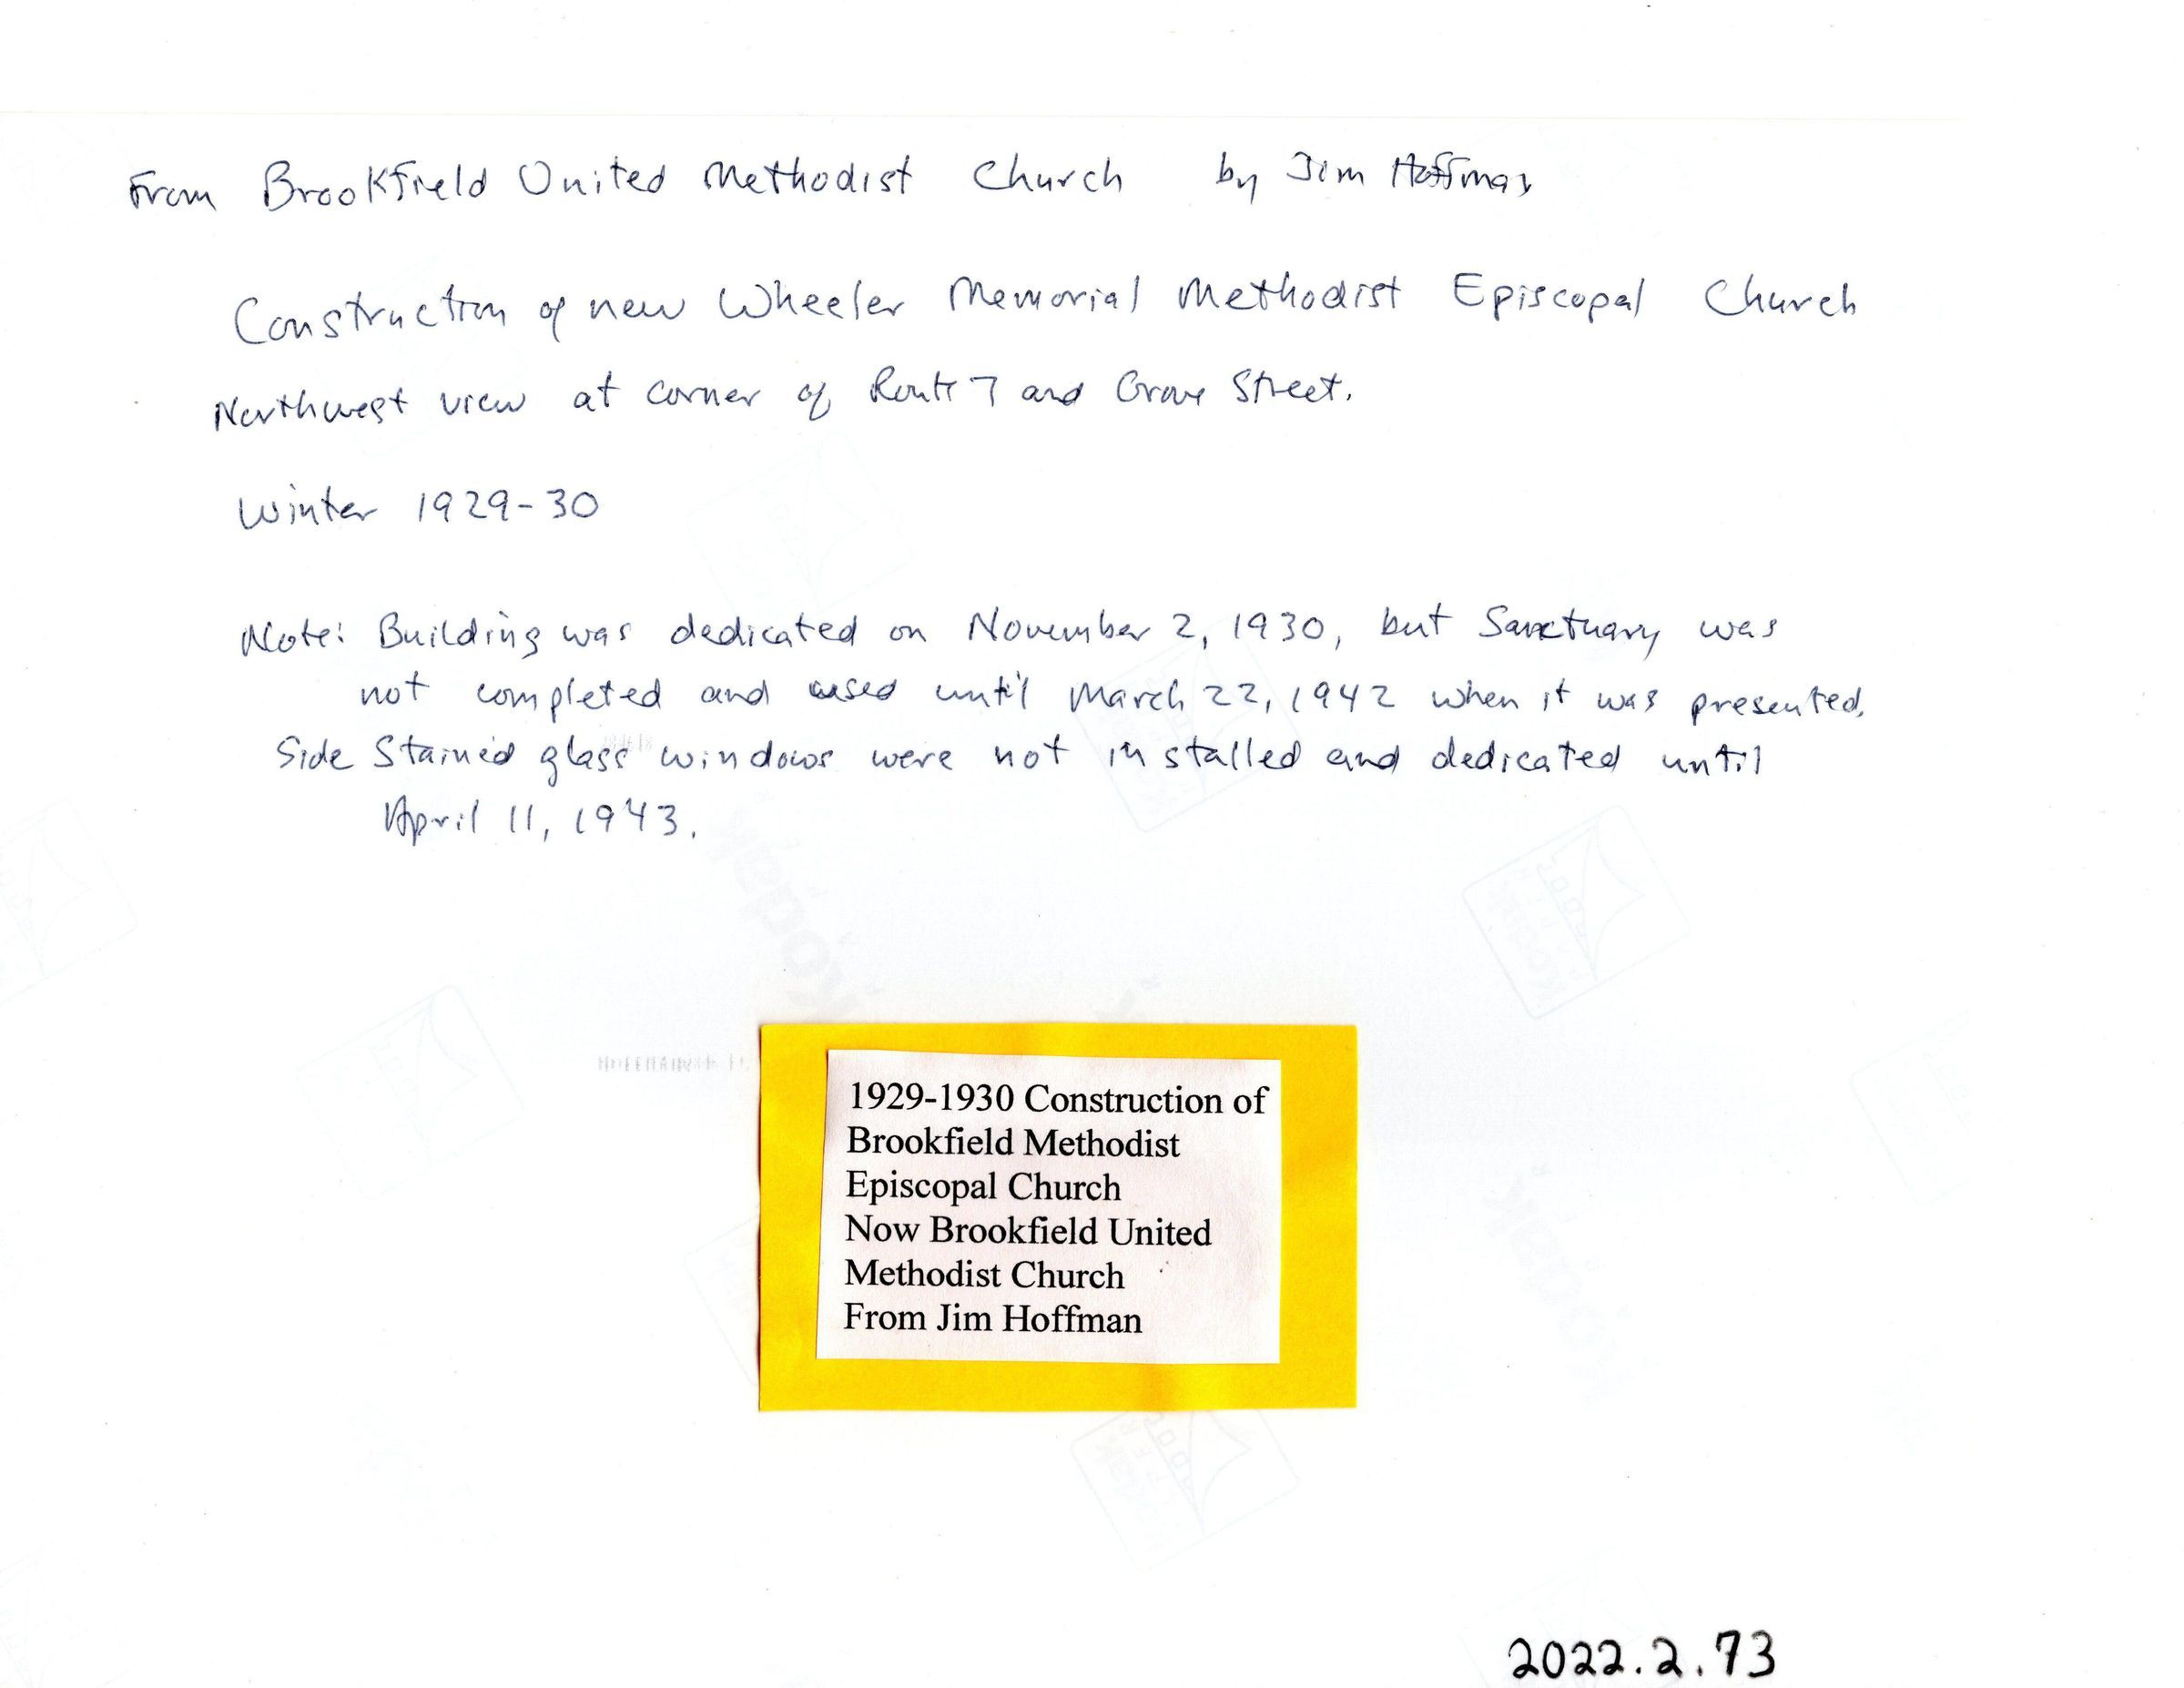 From Brookfield United Methodist Church by Jim Hoffman
Construction of new Wheeler Memorial Methodist Episcopal Church
Northwest view at corner of Route 7 and Grove Street.
Winter 1929-30
Note: Building was dedicated on November 2, 1930, but Sanctuary was
not completed and used until March 22, 1942 when it was presented.
Side Stained glass windows were not installed and dedicated until
April 11, 1943.
Kodak
1929-1930 Construction of
Brookfield Methodist
Episcopal Church
Now Brookfield United
Methodist Church
From Jim Hoffman
2022.2.73